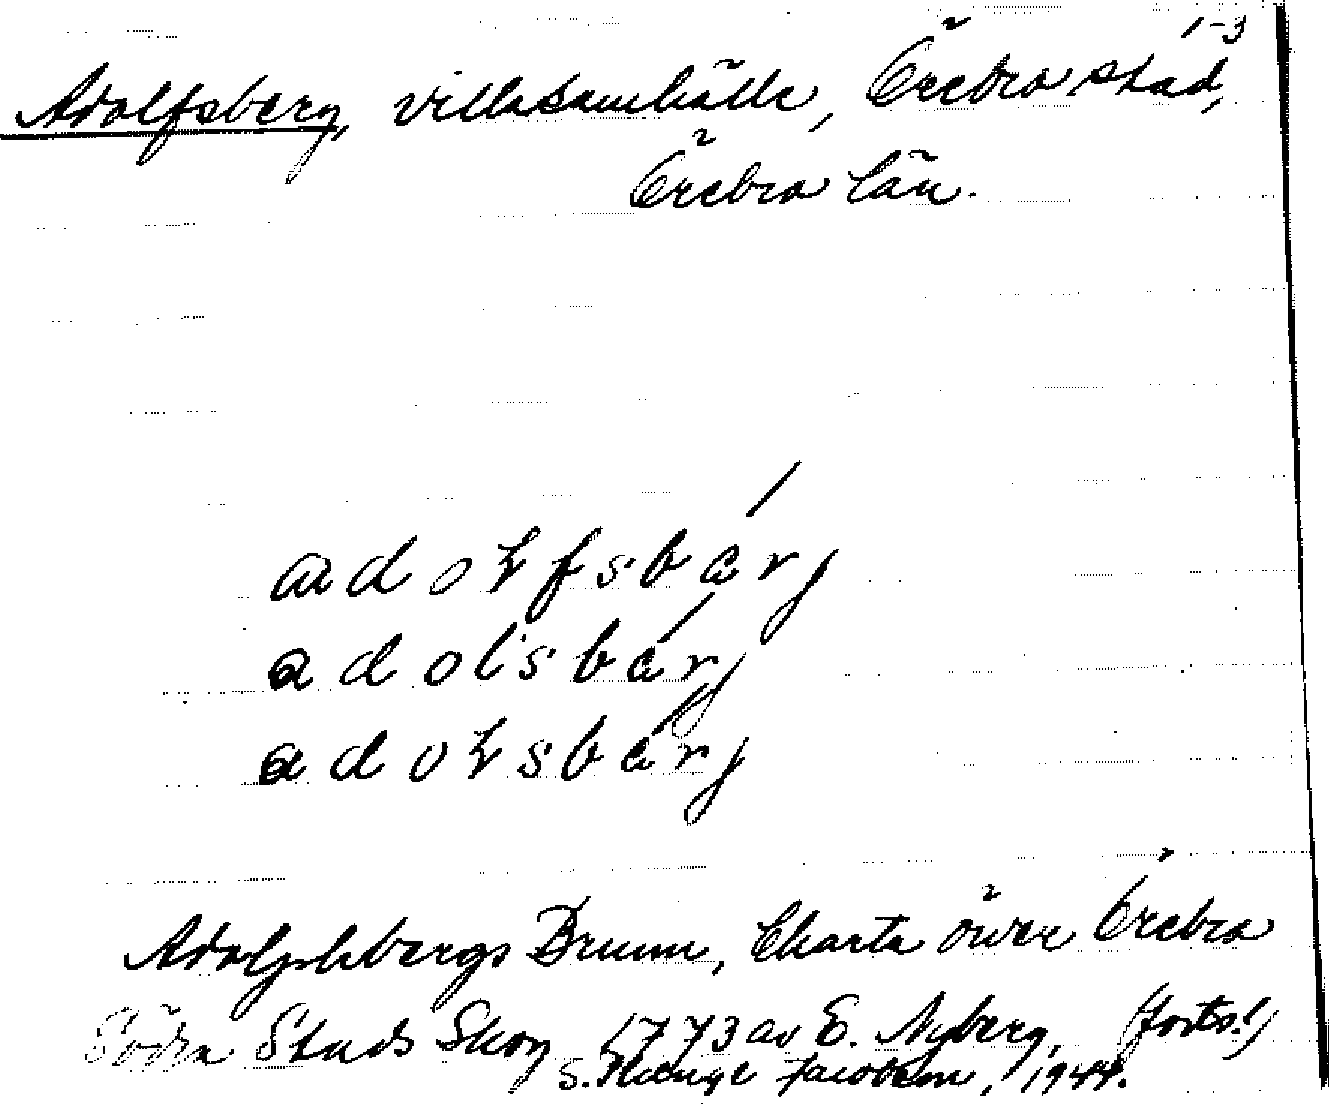 1-3
Adolfsberg, villasamhälle, Örebro stad,
Örebro län.
adołfsbárj
adolsbárj
adołsbárj
Adolphsbergs Brunn, Charta öwer Örebro
Södra Stads Skog 1773 av E. Nyberg, (forts!)
S. Jacobson, 1944.